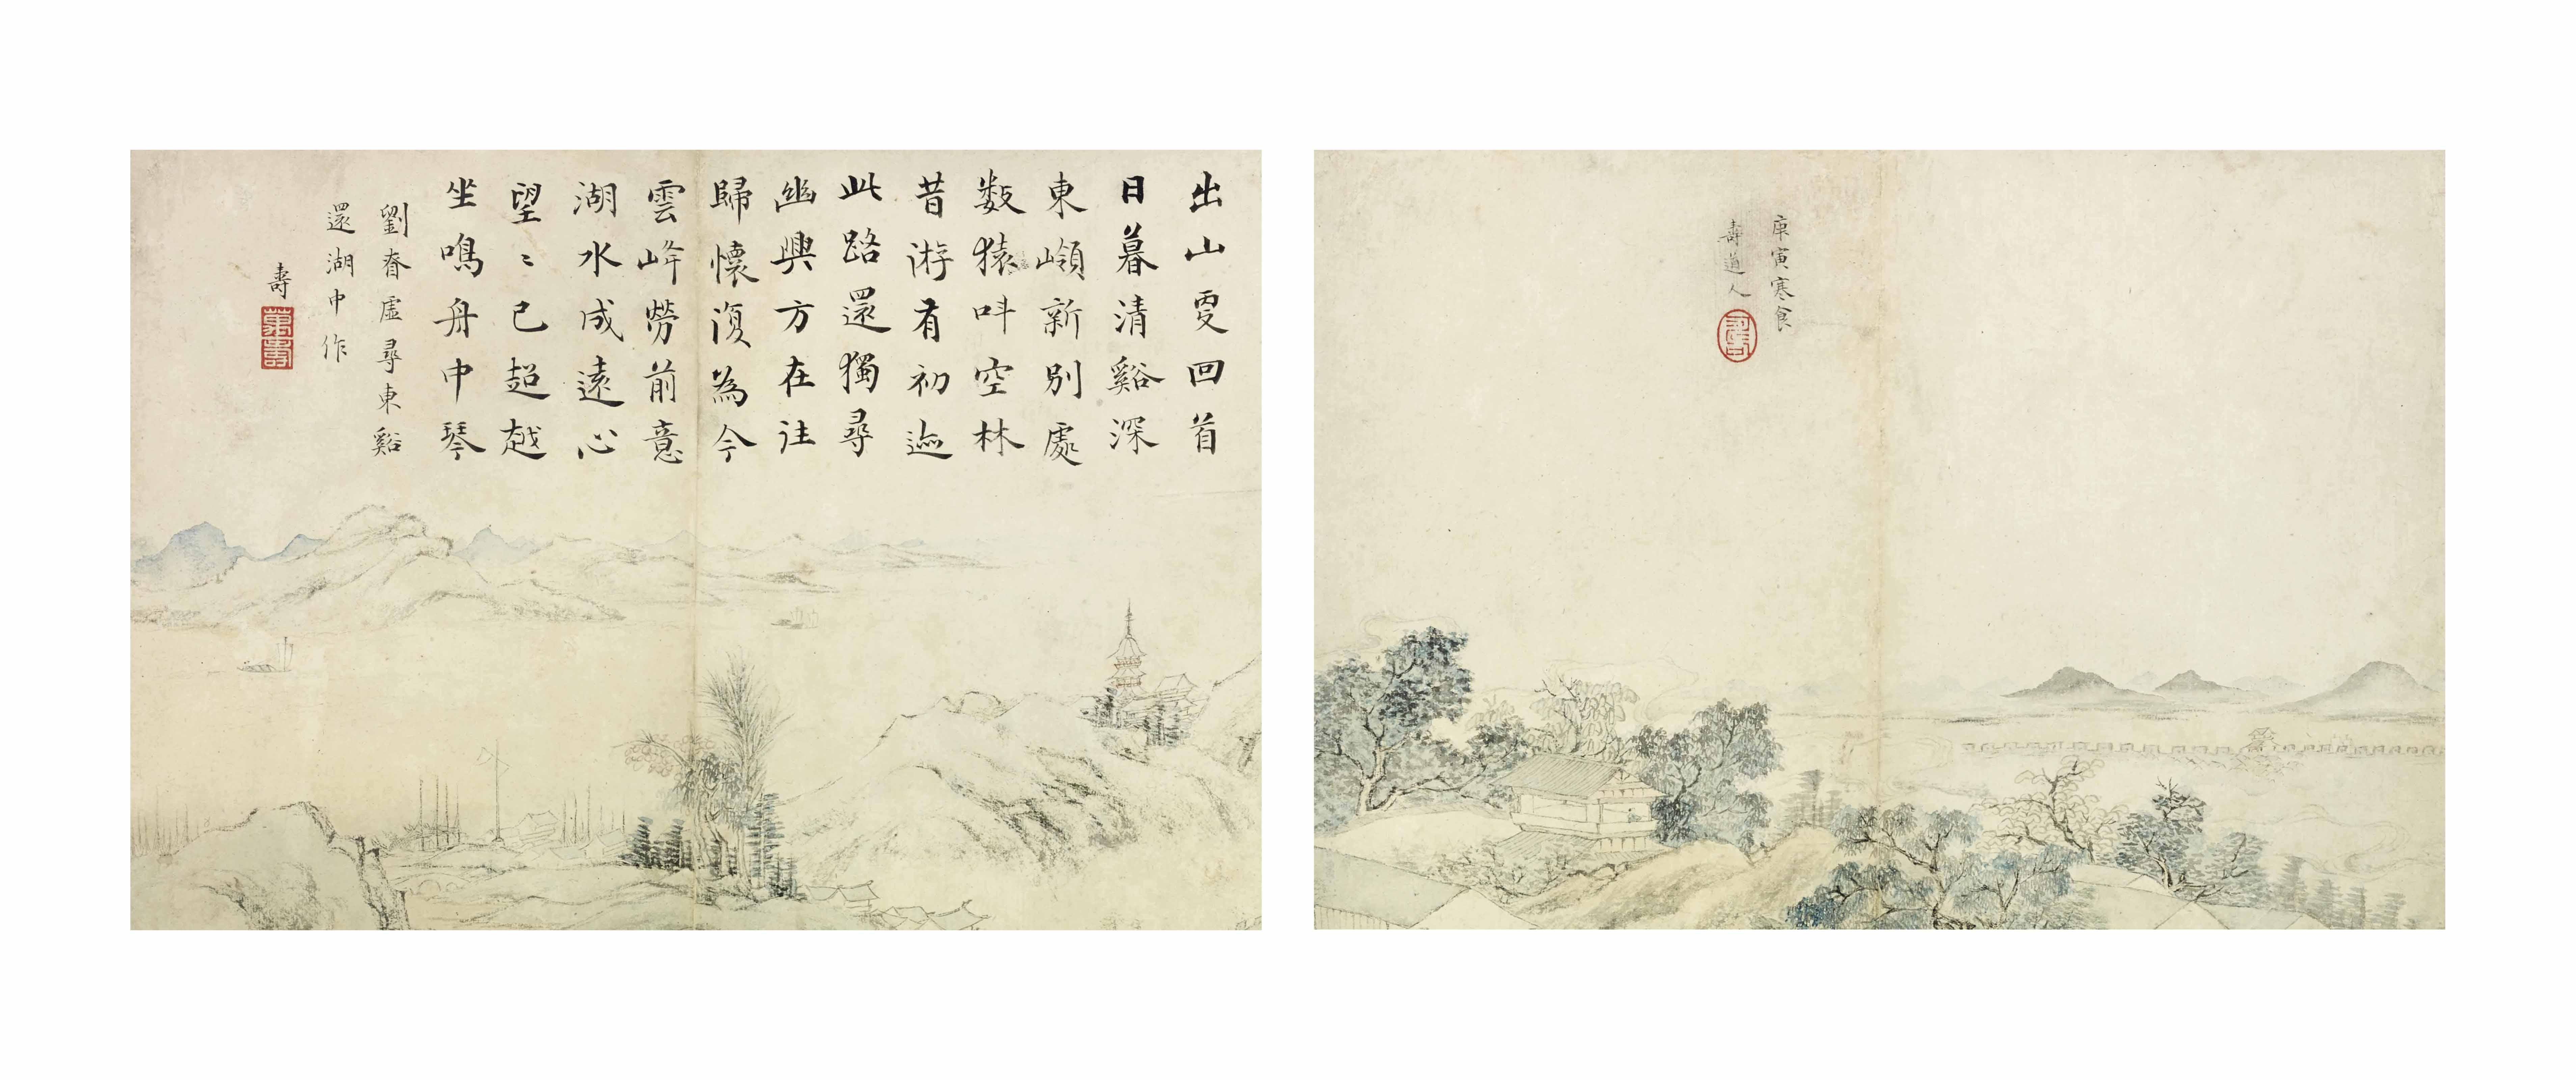 庚寅寒食
壽道人
出山更回首
日暮清谿深
東嶺新別處
数猿呌空林
昔游有初迹
此路還獨尋
幽興方在往
歸懷復為今
雲峰勞前意
湖水成遠心
望〻已超越
坐鳴舟中琴
劉眘虛尋東谿
還湖中作
壽
萬壽